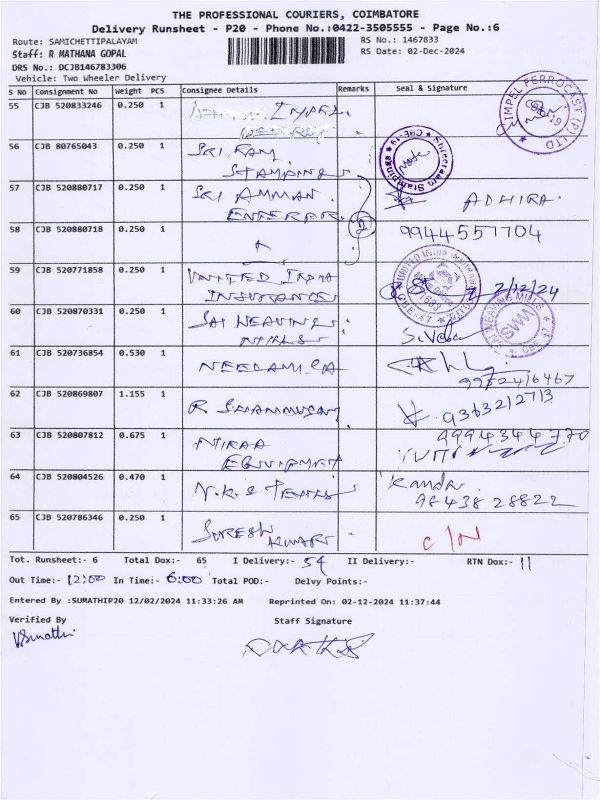 THE PROFESSIONAL COURIERS, COIMBATORE
Delivery Runsheet - P20 - Phone No.:0422-3505555 - Page No.:6
Route: SAMICHETTIPALAYAM
RS No.: 1467833
Staff: R MATHANA GOPAL
RS Date: 02-Dec-2024
DRS No.: DCJB146783306
Vehicle: Two Wheeler Delivery
S No Consignment No Weight PCS Consignee Details Remarks Seal & Signature
55 CJB 520833246 0.250 1 IMPEL
IMPEL FERROCAST (P) LTD
56 CJB 80765043 0.250 1 SRI RAM
STAMPING
Shreeraam Stampings
57 CJB 520880717 0.250 1 SRI AMMAN
ENTERPR ADHIRA
58 CJB 520880718 0.250 1 99445 57704
59 CJB 520771858 0.250 1 UNITED INDIA
INSURANCE 2/12/24
UNITED INDIA
60 CJB 520870331 0.250 1 SAI WEAVING
MILLS
SAI WEAVING MILLS
SWM
61 CJB 520736854 0.530 1 NEELAMEGA
9952416467
62 CJB 520869807 1.155 1 R SHANMUGAM 9363212713
63 CJB 520807812 0.675 1 9994344770
EQUIPMENT
64 CJB 520804526 0.470 1 N.K.S Kanda
98438 28822
65 CJB 520786346 0.250 1 SURESH
KUMAR C/N
Tot. Runsheet:- 6 Total Dox:- 65 I Delivery:- 54 II Delivery:- RTN Dox:- 11
Out Time:- 12:00 In Time:- 6:00 Total POD:- Delvy Points:-
Entered By :SUMATHIP20 12/02/2024 11:33:26 AM Reprinted On: 02-12-2024 11:37:44
Verified By Staff Signature
V.Sumathi